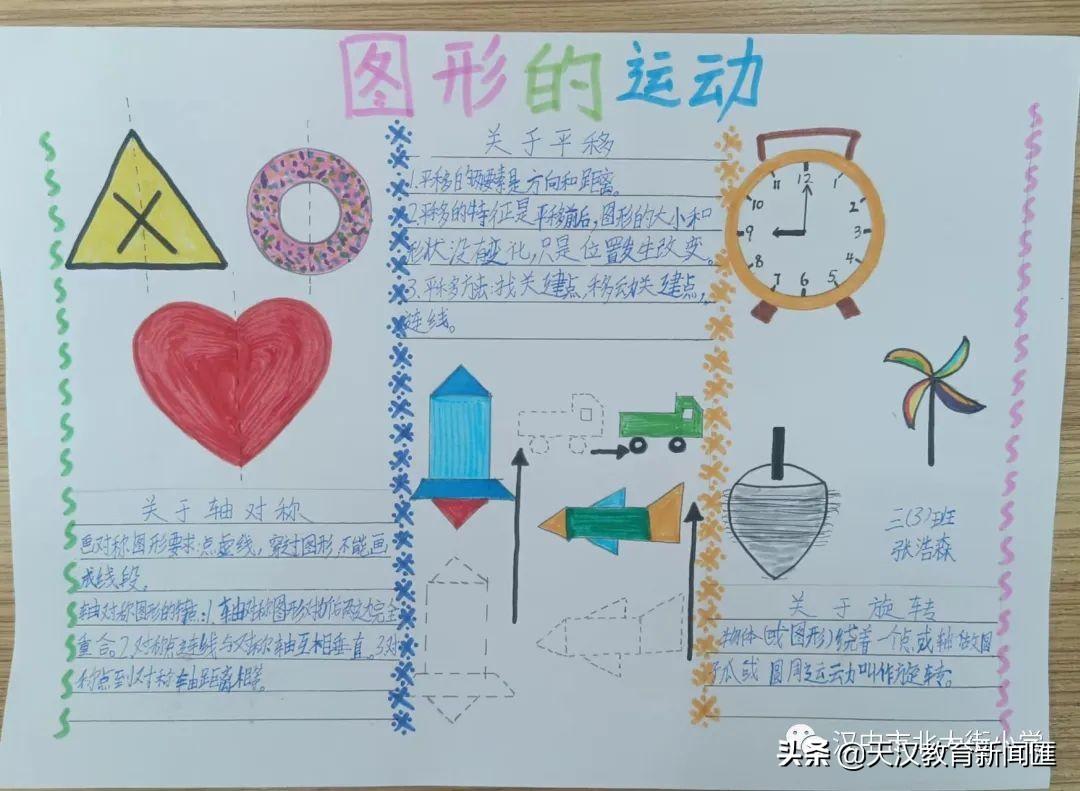 图形的运动
关于平移
1.平移的两要素是方向和距离。
2.平移的特征是平移前后,图形的大小和
形状没有变化,只是位置发生改变。
3.平移方法:找关建点,移动关建点,
连线。
12
1
2
3
4
5
6
7
8
9
10
11
关于轴对称
画对称图形要求:点虚线,穿过图形,不能画
成线段。
轴对称图形的特点:1.轴对称图形对折后两边完全
重合。2.对称点连线与对称轴互相垂直。3.对
称点到对称轴距离相等。
三(3)班
张浩森
关于旋转
物体(或图形)绕着一个点或轴做圆
圆周运动叫作旋转。
汉中市北大街小学
头条@天汉教育新闻匯